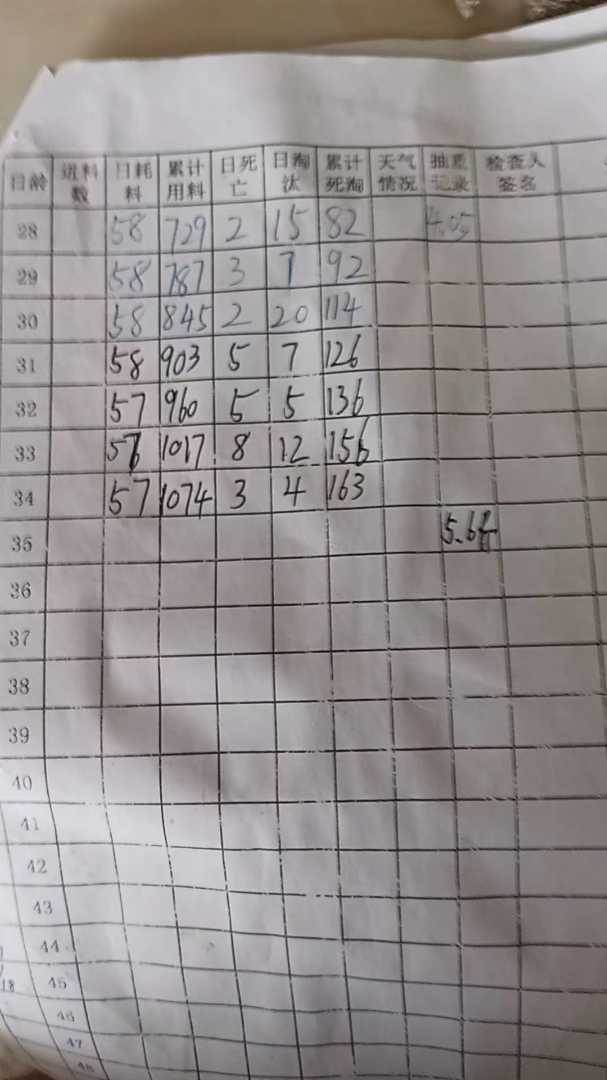 日龄 进料数 日耗料 累计用料 日死亡 日淘汰 累计死淘 天气情况 抽重记录 检查人签名
28 58 729 2 15 82 4.05
29 58 787 3 7 92
30 58 845 2 20 114
31 58 903 5 7 126
32 57 960 5 5 136
33 57 1017 8 12 156
34 57 1074 3 4 163
35
36
37
38
39
40
41
42
43
44
45
46
47
48
18